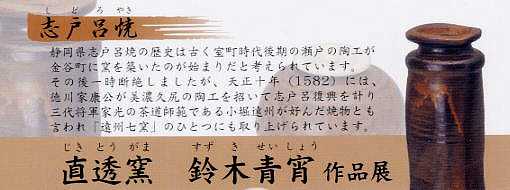 しどろやき
志戸呂焼
静岡県志戸呂焼の歴史は古く室町時代後期の瀬戸の陶工が
金谷町に窯を築いたのが始まりだと考えられています。
その後一時断絶しましたが、天正十年（1582）には、
徳川家康公が美濃久尻の陶工を招いて志戸呂復興を計り
三代将軍家光の茶道師範である小堀遠州が好んだ焼物とも
言われ「遠州七窯」のひとつにも取り上げられています。
じきとうがま　すずきせいしょう
直透窯　鈴木青宵作品展